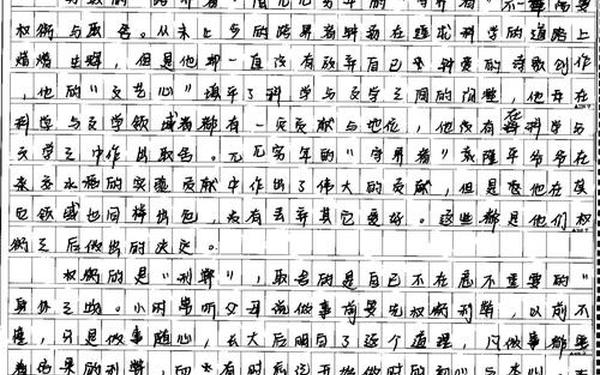 权衡与取舍。从未上岛的跨界者钟扬在追求科学的道路上
熠熠生辉,但是他却一直没有放弃自己爱的诗歌创作
,他的"文艺心"填平了科学与文学之间的间壑,他在
科学与文学领域都有一定贡献与地位,他没有在科学与
文学之中作出取舍。兀兀穷年的"守界者"袁隆平爷爷在
杂交水稻的实验贡献中作出了伟大的贡献,但是他在其
它领域也同样出色,没有丢弃其它爱好。这些都是他们权
衡之后做出的决定。
权衡的是"利弊",取舍的是自己不在意不重要的"
身外之物。小时常听父母说做事前要先权衡利弊,以前不
懂,只是做事随心,长大后明白了这个道理,凡做事都要
有时